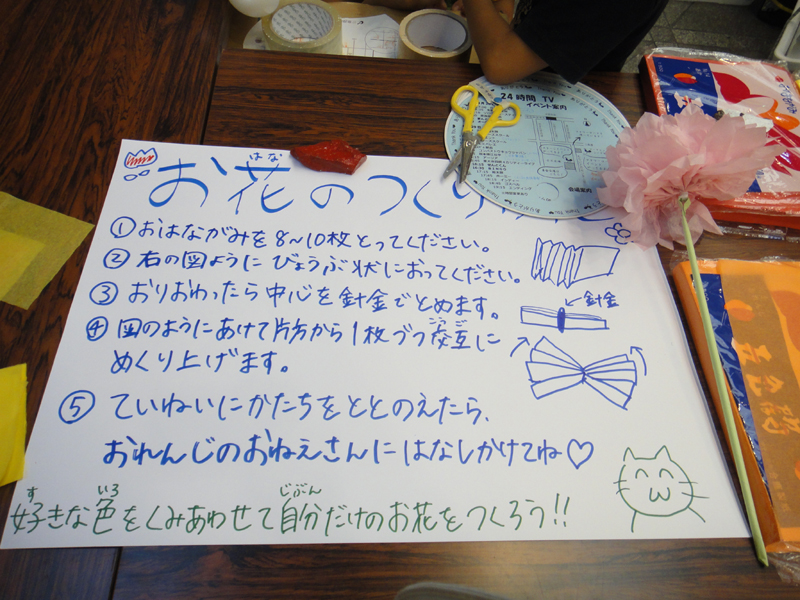 お花のつくり
はな
①おはながみを8~10枚とってください。
②右の図ようにびょうぶ状におってください。
③おりおわったら中心を針金でとめます。
←針金
④図のようにあけて片方から1枚づつ交互に
こうご
めくり上げます。
⑤ていねいにかたちをととのえたら、
おれんじのおねえさんにはなしかけてね♡
す いろ じぶん
好きな色をくみあわせて自分だけのお花をつくろう!!
24時間 TV
イベント案内
会場案内